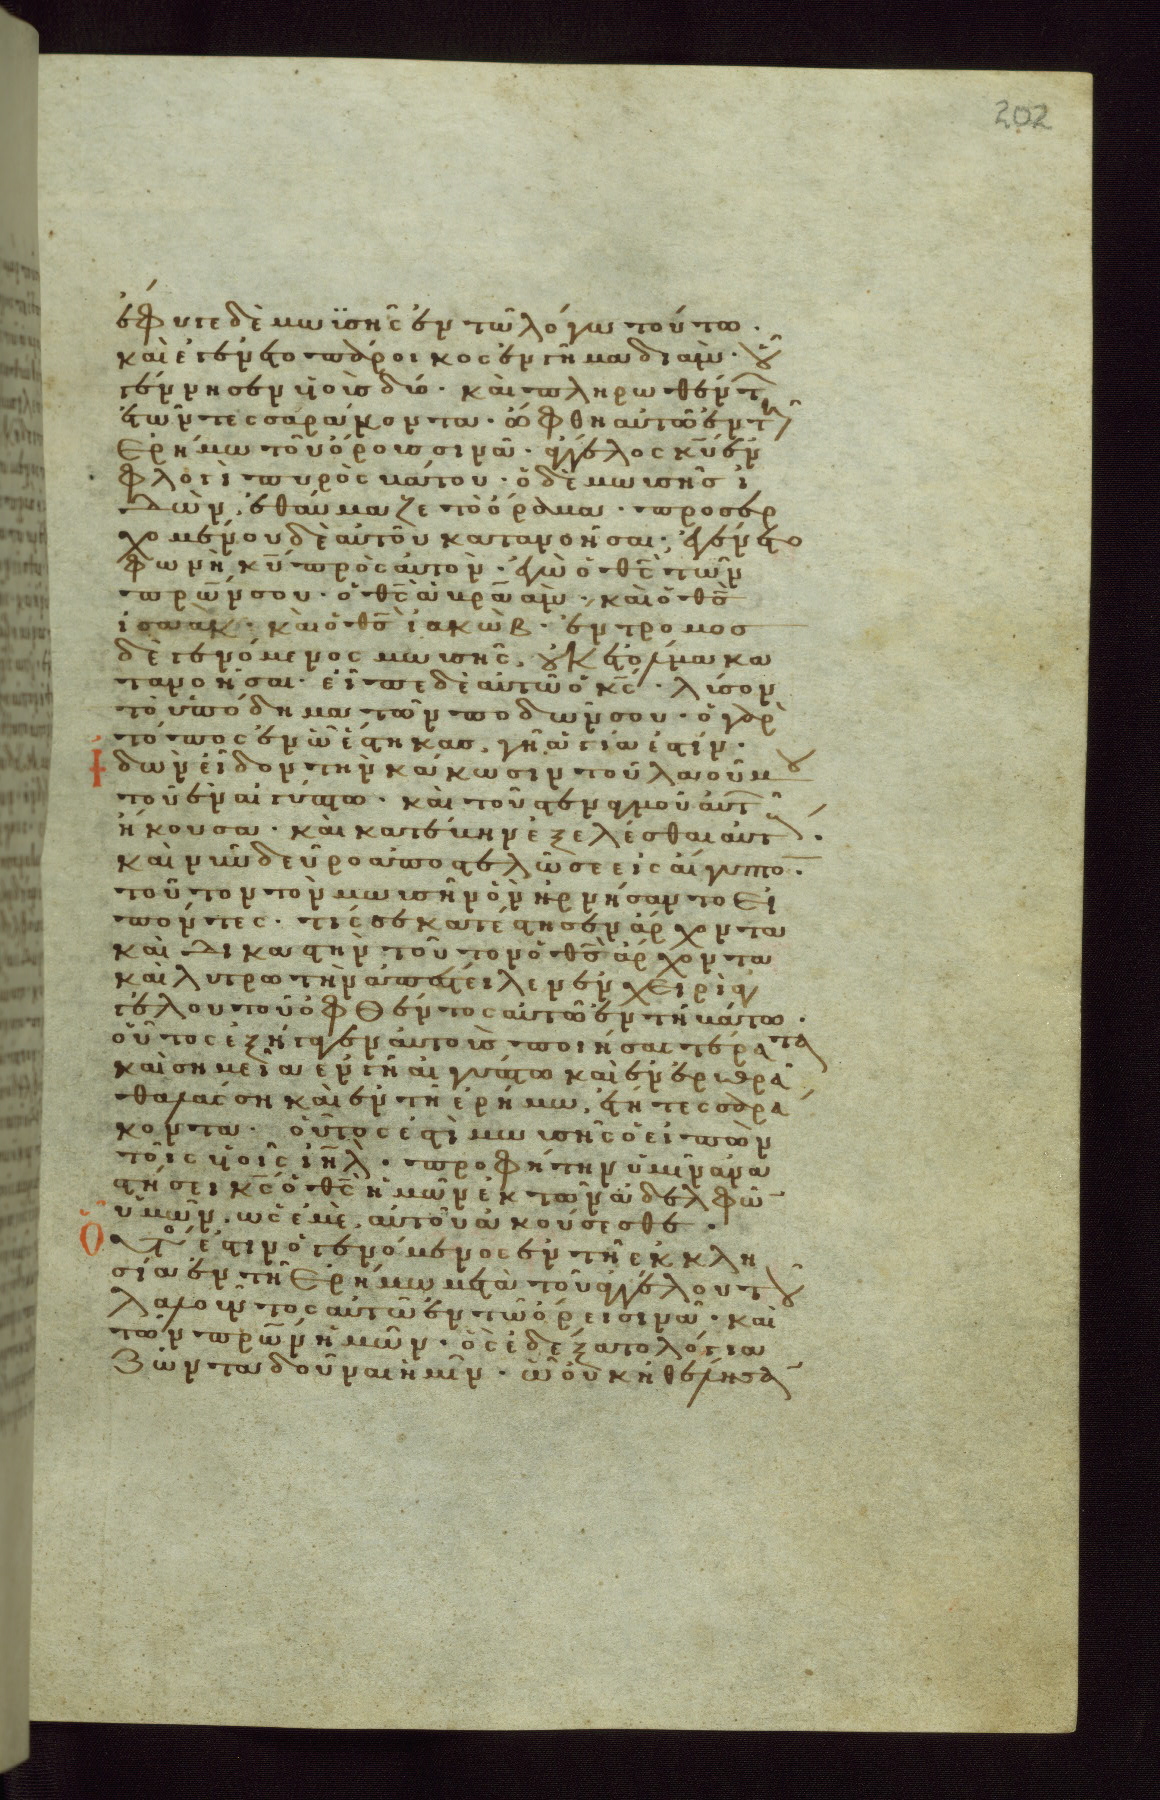 202
ἔφυγε δὲ μωϊσῆς ἐν τῶ λόγω τούτω ·
καὶ ἐγένετο πάροικος ἐν γῆ μαδιάμ · οὗ
ἐγέννησεν υἱοὺς δύο · καὶ πληρωθέντων
ἐτῶν τεσσαράκοντα · ὤφθη αὐτῶ ἐν τῆ
ἐρήμω τοῦ ὄρους σινᾶ · ἄγγελος κυ ἐν
φλογὶ πυρὸς βάτου · ὁ δὲ μωισῆς ἰ
δὼν, ἐθαύμαζε τὸ ὅραμα · προσερ
χομένου δὲ αὐτοῦ κατανοῆσαι, ἐγένετο
φωνὴ κυ πρὸς αὐτόν · ἐγὼ ὁ θς τῶν
πρων σου · ὁ θς ἀβραάμ · καὶ ὁ θς
ἰσαάκ · καὶ ὁ θς ἰακώβ · ἔντρομος
δὲ γενόμενος μωισῆς, οὐκ ἐτόλμα κα
τανοῆσαι · εἶπε δὲ αὐτῶ ὁ κς · λῦσον
τὸ ὑπόδημα τῶν ποδῶν σου · ὁ γὰρ
τόπος ἐν ὧ ἕστηκας, γῆ ἁγία ἐστίν ·
ἰδὼν εἶδον τὴν κάκωσιν τοῦ λαοῦ μου
τοῦ ἐν αἰγύπτω · καὶ τοῦ στεναγμοῦ αὐτῶν
ἤκουσα · καὶ κατέβην ἐξελέσθαι αὐτούς ·
καὶ νῦν δεῦρο ἀποστελῶ σε εἰς αἴγυπτον ·
τοῦτον τὸν μωισῆν ὃν ἠρνήσαντο εἰ
πόντες · τίς σε κατέστησεν ἄρχοντα
καὶ δικαστὴν τοῦτον ὁ θς ἄρχοντα
καὶ λυτρωτὴν ἀπέστειλεν ἐν χειρὶ ἀγ
γέλου τοῦ ὀφθέντος αὐτῶ ἐν τῆ βάτω ·
οὗτος ἐξήγαγεν αὐτοὺς ποιήσας τέρατα
καὶ σημεῖα ἐν γῆ αἰγύπτω καὶ ἐν ἐρυθρᾶ
θαλάσση καὶ ἐν τῆ ἐρήμω, ἔτη τεσσαρά
κοντα · οὗτός ἐστι μωισῆς ὁ εἰπὼν
τοῖς υἱοῖς ιηλ · προφήτην ὑμῖν ἀνα
στήσει κς ὁ θς ἡμῶν ἐκ τῶν ἀδελφῶν
ὑμῶν, ὡς ἐμέ, αὐτοῦ ἀκούσεσθε ·
οὗτός ἐστιν ὁ γενόμενος ἐν τῆ ἐκκλη
σία ἐν τῆ ἐρήμω μετὰ τοῦ ἀγγέλου τοῦ
λαλοῦντος αὐτῶ ἐν τῶ ὄρει σινᾶ · καὶ
τῶν πρων ἡμῶν · ὃς ἐδέξατο λόγια
ζῶντα δοῦναι ἡμῖν · ὧ οὐκ ἠθέλησαν